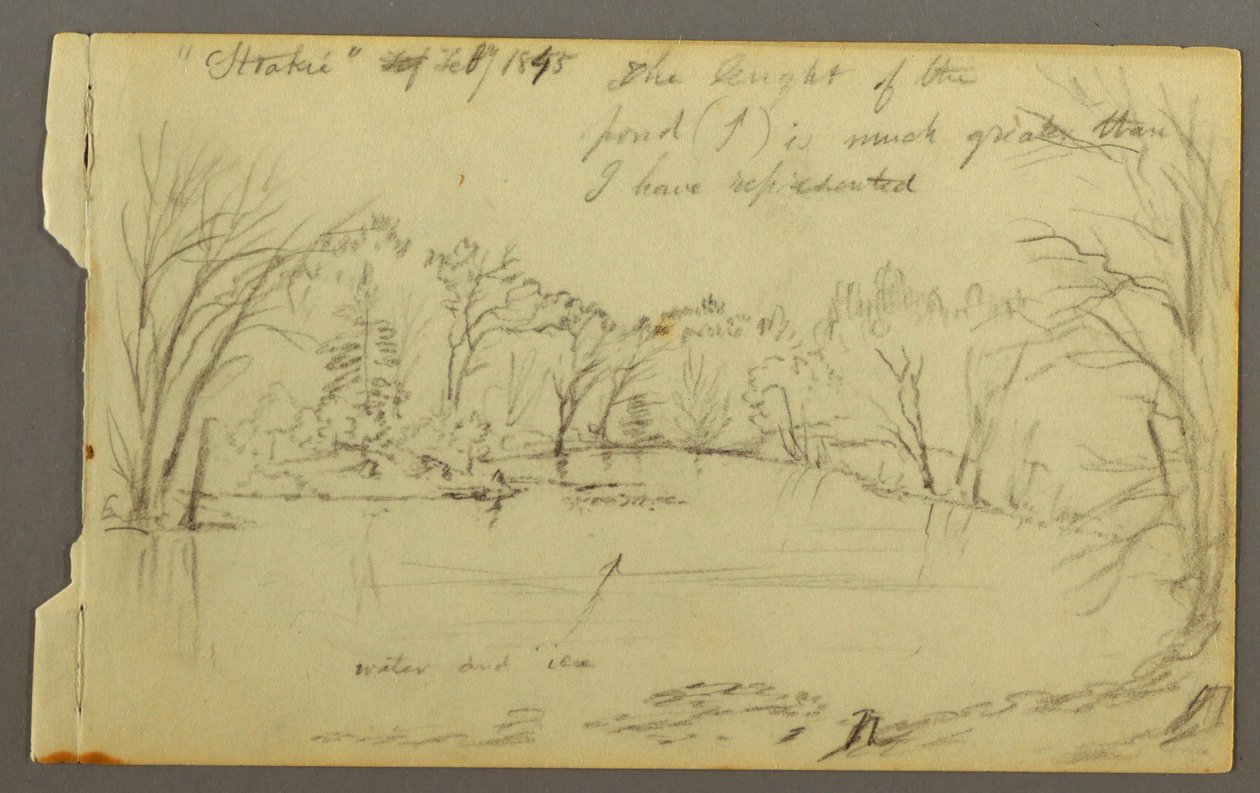 "Strakie" Feby 1845
The lenght of the
pond (↑) is much greater than
I have represented
water and ice